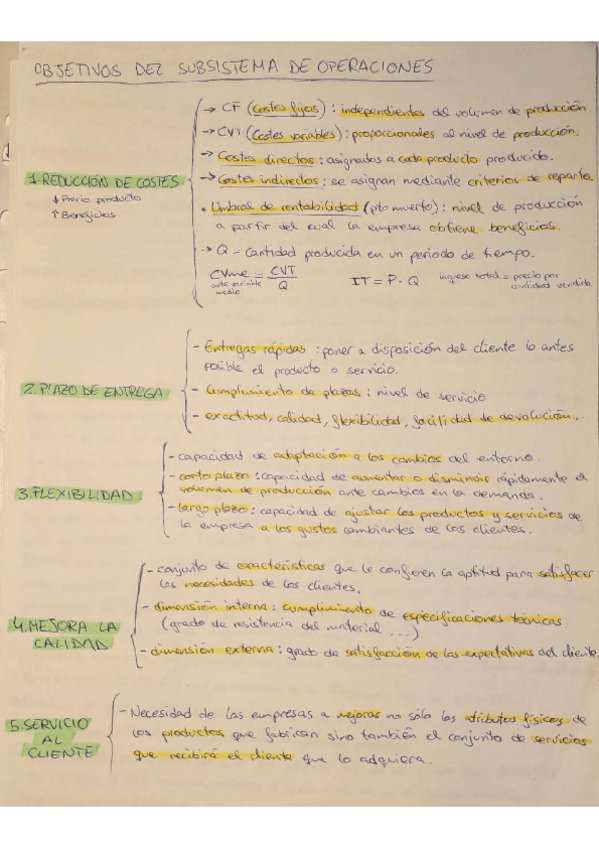 OBJETIVOS DEL SUBSISTEMA DE OPERACIONES
1. REDUCCIÓN DE COSTES
↓ Precio producto
↑ Beneficios
→ CF (Costes fijos): independientes del volumen de producción.
→ CVT (Costes variables): proporcionales al nivel de producción.
→ Costes directos: asignados a cada producto producido.
→ Costes indirectos: se asignan mediante criterios de reparto.
• Umbral de rentabilidad (pto muerto): nivel de producción
a partir del cual la empresa obtiene beneficios.
→ Q - Cantidad producida en un periodo de tiempo.
CVme = CVT / Q
coste variable medio
IT = P · Q
ingreso total = precio por
cantidad vendida
2. PLAZO DE ENTREGA
- Entregas rápidas: poner a disposición del cliente lo antes
posible el producto o servicio.
- Cumplimiento de plazos: nivel de servicio
- exactitud, calidad, flexibilidad, facilidad de devolución...
3. FLEXIBILIDAD
- capacidad de adaptación a los cambios del entorno.
- corto plazo: capacidad de aumentar o disminuir rápidamente el
volumen de producción ante cambios en la demanda.
- largo plazo: capacidad de ajustar los productos y servicios de
la empresa a los gustos cambiantes de los clientes.
4. MEJORA LA
CALIDAD
- conjunto de características que le confieren la aptitud para satisfacer
las necesidades de los clientes.
- dimensión interna: cumplimiento de especificaciones técnicas
(grado de resistencia del material ...)
- dimensión externa: grado de satisfacción de las expectativas del cliente.
5. SERVICIO
AL
CLIENTE
- Necesidad de las empresas a mejorar no sólo los atributos físicos de
los productos que fabrican sino también el conjunto de servicios
que recibirá el cliente que lo adquiera.